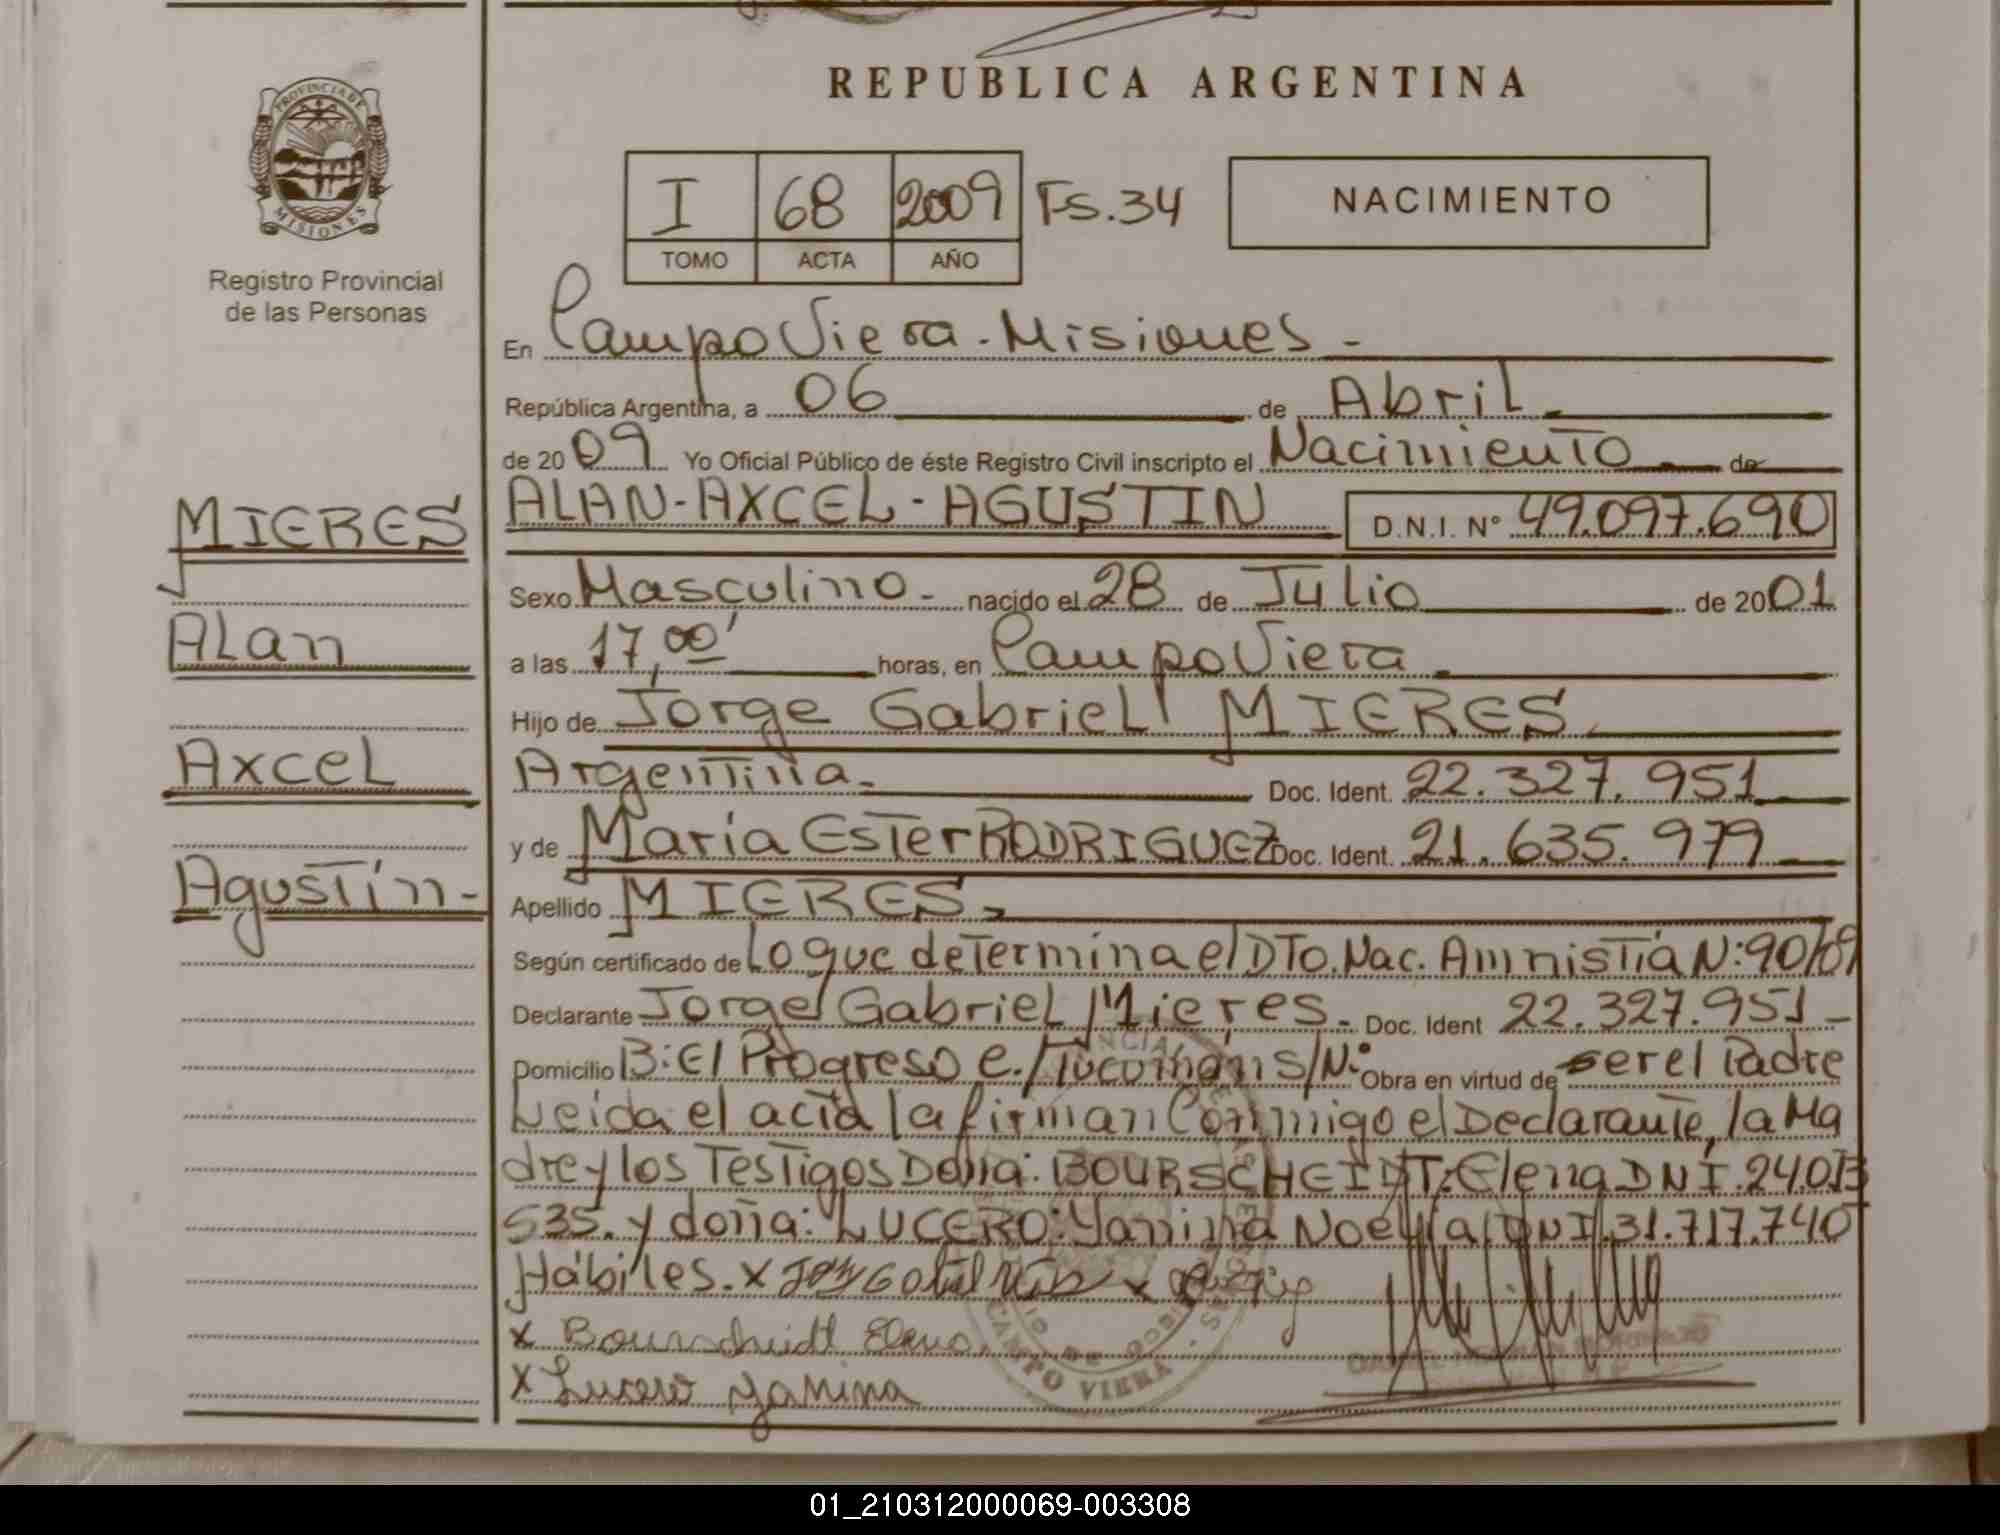 REPUBLICA ARGENTINA
PROVINCIA DE
MISIONES
Registro Provincial
de las Personas
I 68 2009 Fs. 34
TOMO ACTA AÑO
NACIMIENTO
En Campo Viera - Misiones -
República Argentina, a 06 de Abril
de 2009 Yo Oficial Público de éste Registro Civil inscripto el Nacimiento de
ALAN - AXCEL - AGUSTIN D.N.I. N° 49.097.690
Sexo Masculino - nacido el 28 de Julio de 2001
a las 17,00' horas, en Campo Viera
Hijo de Jorge Gabriel MIERES
Argentina - Doc. Ident. 22.327.951
y de María Ester RODRIGUEZ Doc. Ident. 21.635.979
Apellido MIERES
Según certificado de Lo que determina el DTO. Nac. Amnistía N: 90/09
Declarante Jorge Gabriel Mieres - Doc. Ident 22.327.951 -
Domicilio B: El Progreso C./Tucumán S/N° Obra en virtud de ser el Padre
Leída el acta la firman Conmigo el Declarante, la Ma
dre y los Testigos Doña: BOURSCHEIDT: Elena DNI. 24.013
535. y doña: LUCERO: Yanina Noelia DNI. 31.717.740
Hábiles. x x
x Bourscheidt Elena
x Lucero Yanina
CAMPO VIERA
MIERES
Alan
Axcel
Agustín -
01_210312000069-003308